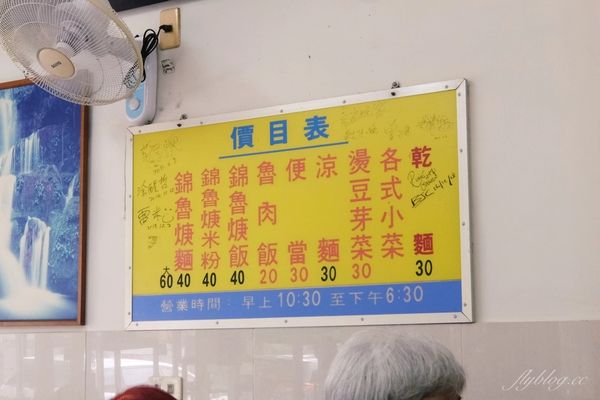 價目表
乾麵 30
各式小菜
燙豆芽菜 30
涼麵 30
便當 30
魯肉飯 20
錦魯焿飯 40
錦魯焿米粉 40
錦魯焿麵 40 大60
營業時間：早上10:30 至下午6:30
flyblog.cc